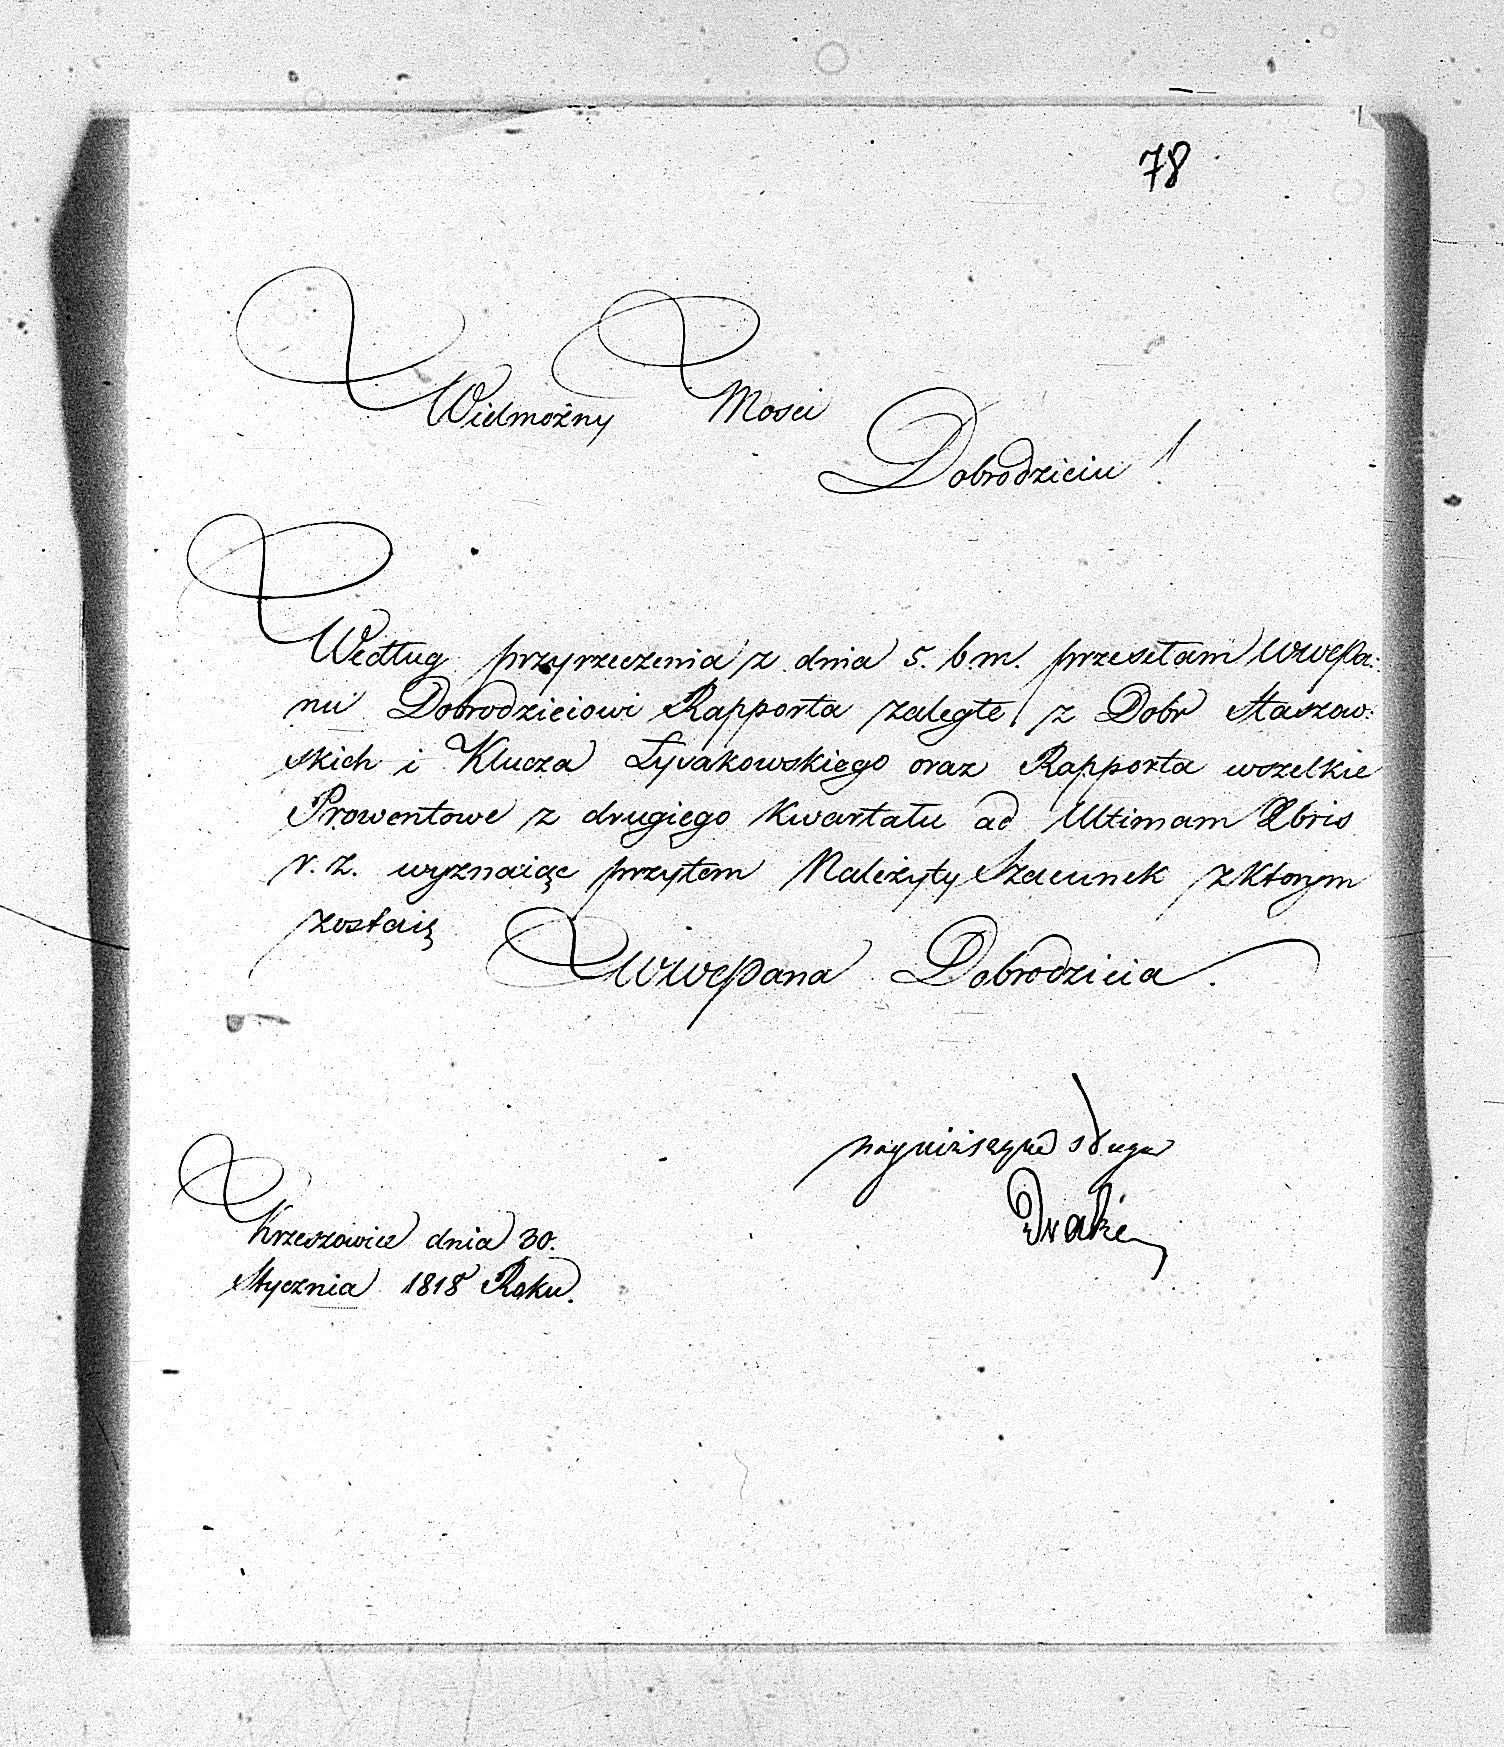 78
Wielmożny Mosci
Dobrodzieiu!
Według przyrzeczenia z dnia 5. b.m. przesełam WWePa:
nu Dobrodzieiowi Rapporta zaległe z Dobr Staszow:
skich i Klucza Łysakowskiego oraz Rapporta wszelkie
Prowentowe z drugiego Kwartału ad Ultimam Xbris
r. z. wyznaiąc przytem Należyty Szacunek z Ktorym
zostaię
WWePana Dobrodzieia.
nayniższym sługą
Krzeszowice dnia 30.
Stycznia 1818 Roku.